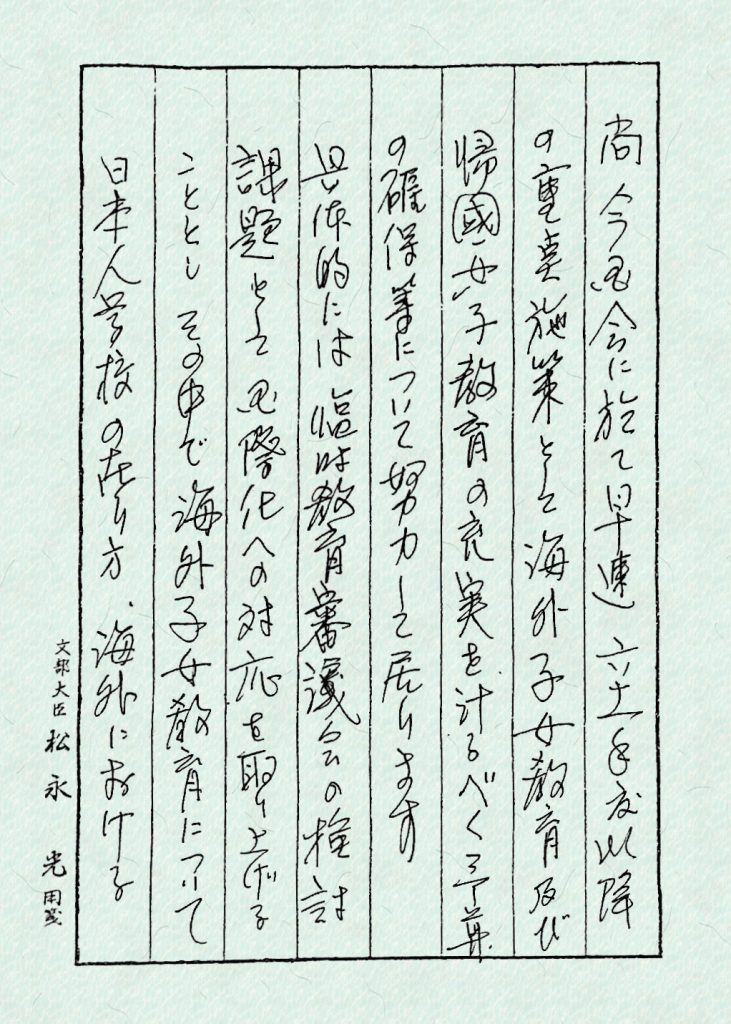 尚今国会に於て早速六十一年度以降
の重要施策として海外子女教育及び
帰國子女教育の充実を計るべく予算
の確保等について努力して居ります
具体的には臨時教育審議会の検討
課題として国際化への対応を取り上げる
こととし その中で海外子女教育について
日本人学校の在り方、海外における
文部大臣 松永 光用箋